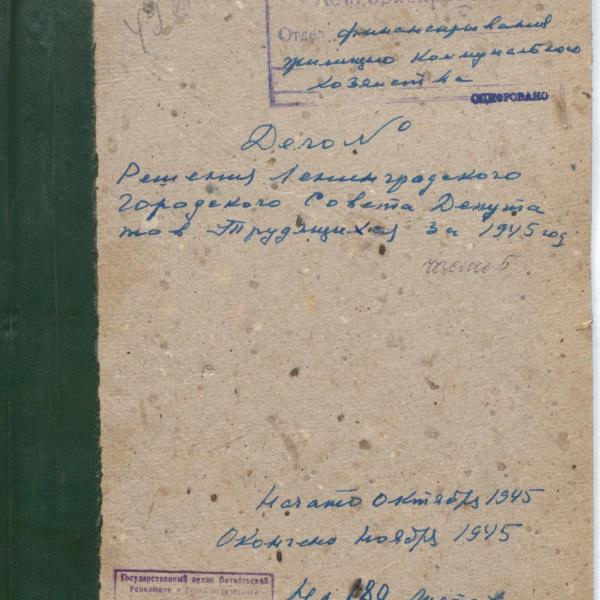 Отдел финансирования
жилищно Коммунального
Хозяйства
ОЦИФРОВАНО
Дело №
Решения Ленинградского
Городского Совета Депута
тов Трудящихся за 1945 год
часть 5
Начато Октября 1945
Окончено Ноября 1945
Государственный архив Октябрьской
Революции и
На 180 листах